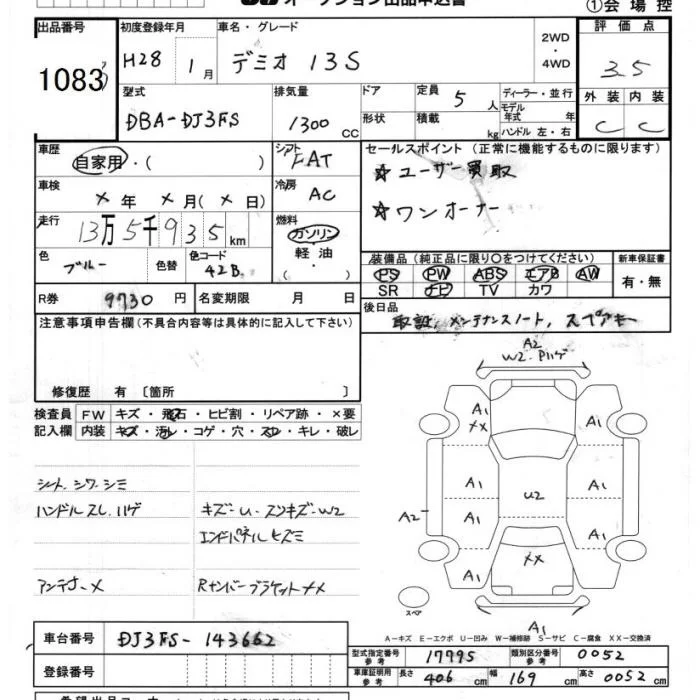 オークション出品申込書
①会場控
出品番号 初度登録年月 車名・グレード 2WD・4WD 評価点
1083 H28 1月 デミオ 13S 3.5
型式 排気量 ドア 定員 5人 ディーラー・並行 外装 内装
DBA-DJ3FS 1300CC 形状 積載 kg モデル年式 年 C C
ハンドル 左・右
車歴 自家用・( ) シフト FAT セールスポイント(正常に機能するものに限ります)
☆ユーザー買取
車検 ×年 ×月(×日) 冷房 AC
☆ワンオーナー
走行 13万5千935km 燃料 ガソリン・軽油・( )
色 ブルー 色替 色コード 42B
装備品(純正品に限り○をつけてください) 新車保証書
PS PW ABS エアB AW 有・無
SR ナビ TV カワ
R券 9730円 名変期限 月 日
後日品
取説、メンテナンスノート、スペアキー
注意事項申告欄(不具合内容等は具体的に記入して下さい)
修復歴 有〔箇所 〕
A2
W2・Pハゲ
検査員記入欄 FW キズ・飛石・ヒビ割・リペア跡・×要
内装 キズ・汚レ・コゲ・穴・スレ・キレ・破レ
A1 A1
XX
シート、シワ、シミ
ハンドルスレ、ハゲ キズ-U-スリキズ-W2
エンドパネルヒズミ
A1 U2 A1
A2
A1 A1
XX
アンテナ-× Rナンバーブラケット××
A1 A1
スペア
A1
A-キズ E-エクボ U-凹み W-補修跡 S-サビ C-腐食 XX-交換済
車台番号 DJ3FS-143662
型式指定番号 参考 17795 類別区分番号 参考 0052
登録番号
車庫証明用 参考 長さ 406cm 幅 169cm 高さ 0052cm